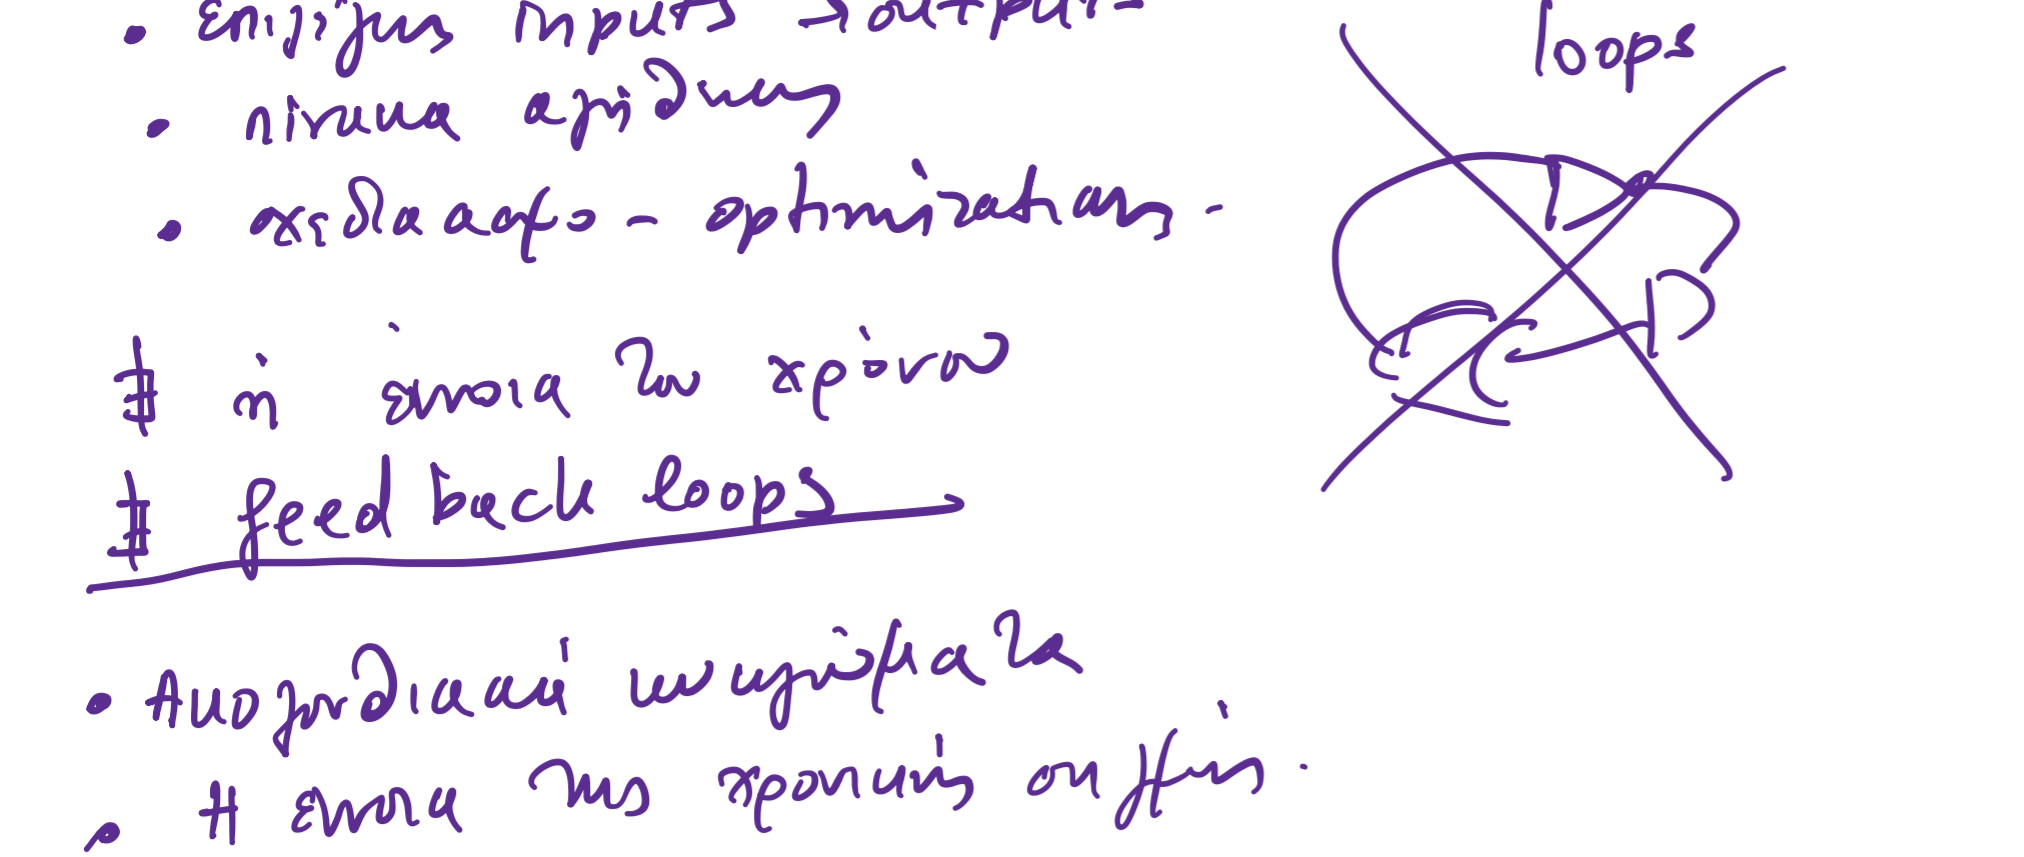 επιλέγεις inputs → outputs
loops
• πίνακα αληθείας
• σχεδιασμο - optimization.
# η έννοια του χρόνου
# feedback loops
• Ακολουθιακά κυκλώματα
• Η έννοια της χρονικής στιγμής.